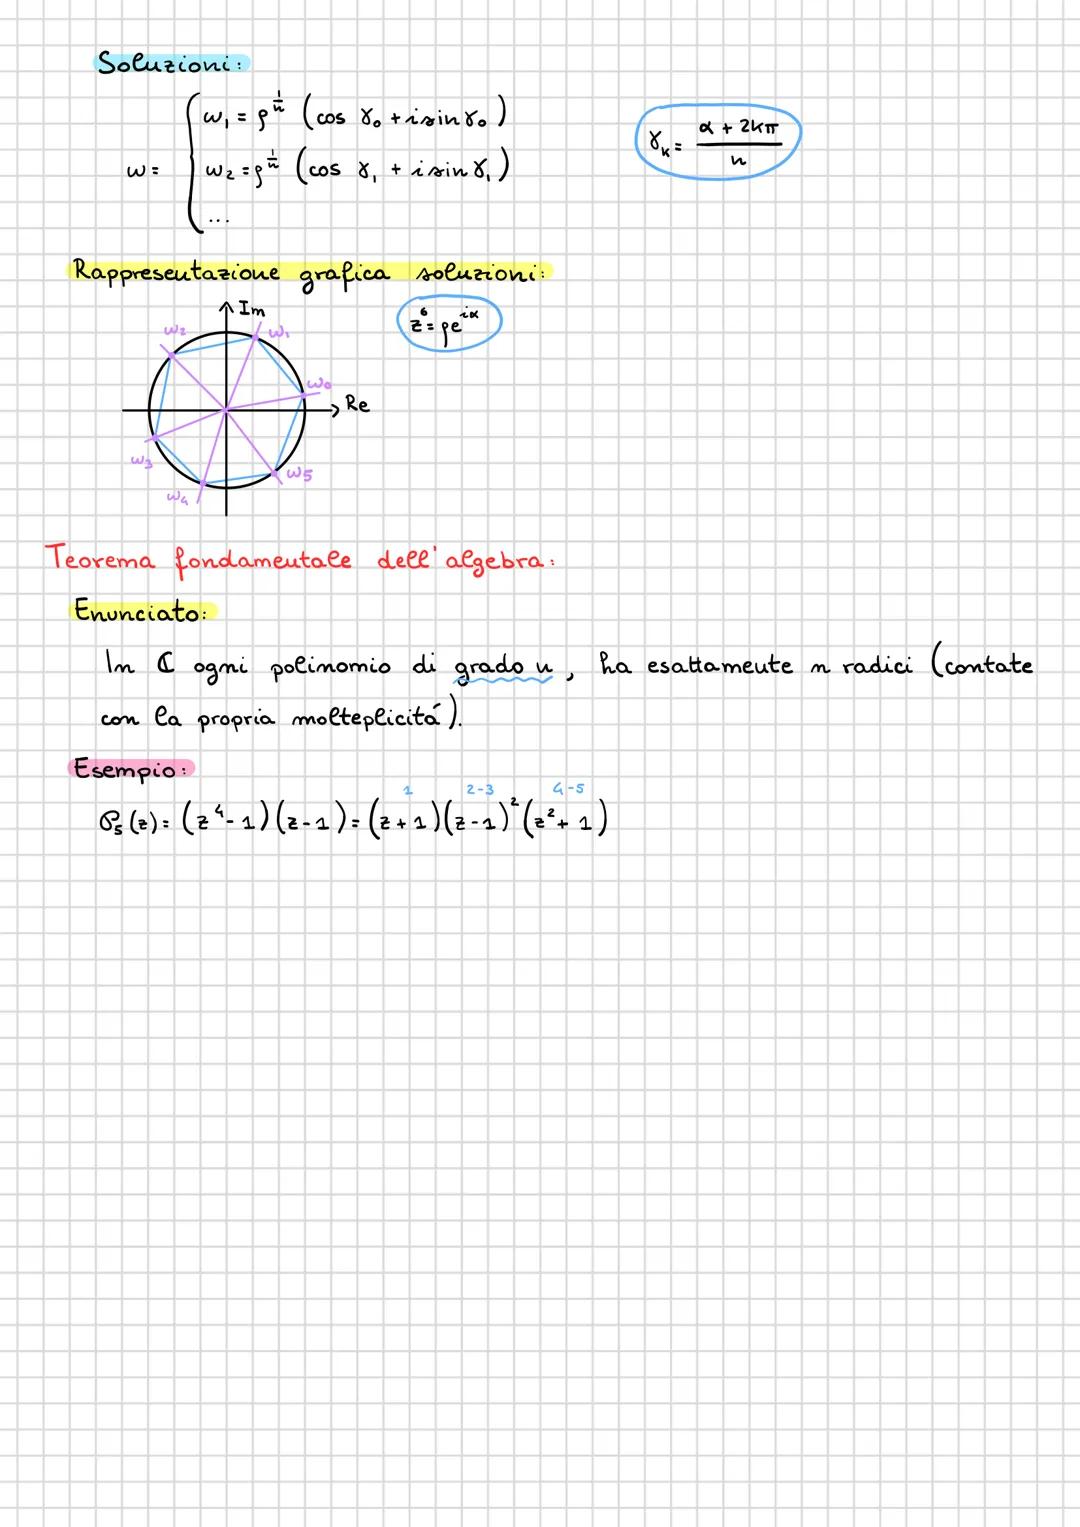 Soluzioni:
w₁ = ρ^(1/n) (cos γ₀ + i sin γ₀)
γ_k = (α + 2kπ)/n
w = { w₂ = ρ^(1/n) (cos γ₁ + i sin γ₁)
...
Rappresentazione grafica soluzioni:
Im
z⁶ = ρe^(iα)
w₂ w₁
w₀
Re
w₃
w₅
w₄
Teorema fondamentale dell'algebra:
Enunciato:
In ℂ ogni polinomio di grado n, ha esattamente n radici (contate
con la propria molteplicitá).
Esempio:
1 2-3 4-5
P₅(z) = (z⁴-1)(z-1) = (z+1)(z-1)²(z²+1)